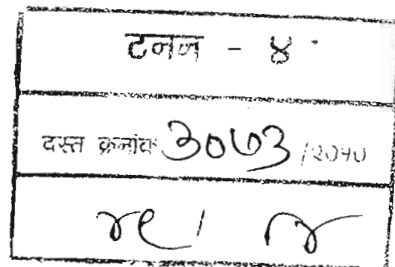 टनन - ४
दस्त क्रमांक ३०७३ /२०१०